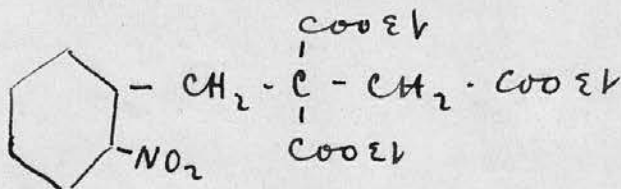 COOEt
- CH2 - C - CH2 - COOEt
-NO2
COOEt